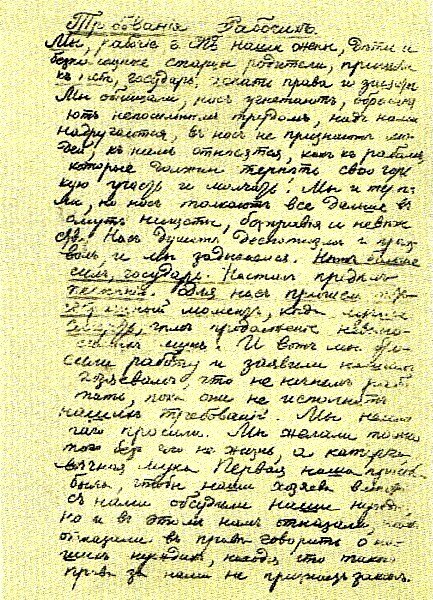 Требованія Рабочихъ.
Мы, рабочіе г. наши жены, дѣти и
безпомощные старцы родители, пришли
къ , государь, искати правъ и защиты
Мы обнищали, насъ угнетаютъ,
ютъ непосильнымъ трудомъ, надъ нами
надругаются, въ насъ не признаютъ лю-
дей, къ намъ относятся, какъ къ рабамъ,
которые должны терпѣть свою горь-
кую участь и молчать! Мы и терпѣ-
ли, но насъ толкаютъ все дальше въ
омутъ нищеты, безправія и невѣже-
ства. Насъ душитъ деспотизмъ и произ-
волъ, и мы задыхаемся. Нѣтъ больше
силъ, государь. Насталъ предѣлъ
терпѣнію. Для насъ пришелъ
моментъ, когда лучше
смерть, чѣмъ продолженіе невыно-
симыхъ мукъ. И вотъ мы бро-
сили работу и заявили нашимъ
хозяевамъ, что не начнемъ рабо-
тать, пока они не исполнятъ
нашихъ требованій. Мы немно-
гаго просили. Мы желали только
того безъ чего не жизнь, а каторга
вѣчная мука Первая наша просьба
была, чтобы наши хозяева вмѣстѣ
съ нами обсудили наши нужды,
но и въ этомъ намъ отказали,
отказали въ правѣ говорить о на-
шихъ нуждахъ, находя, что такого
права за нами не признаетъ законъ.